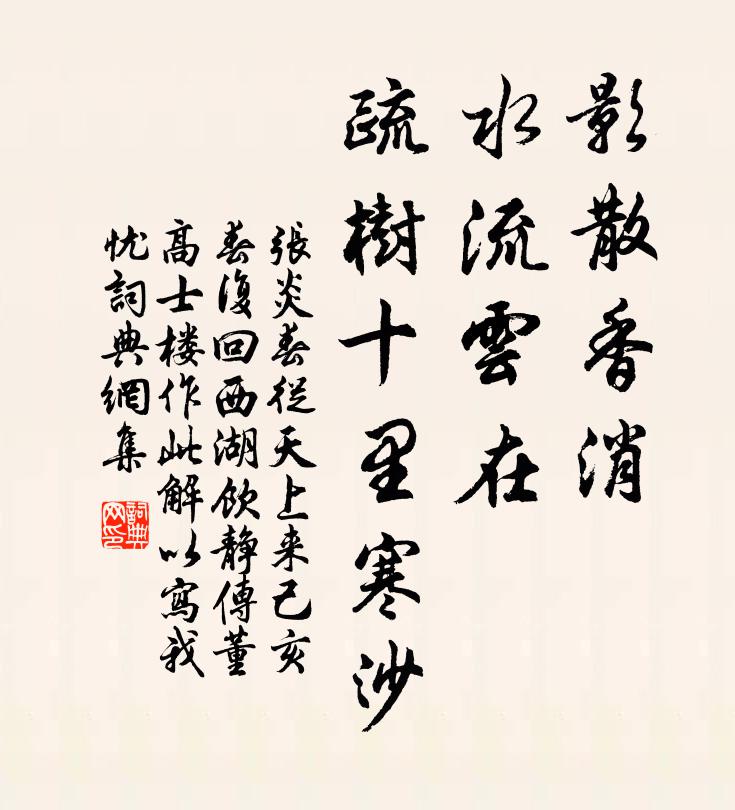 影散香消
水流雲在
疏樹十里寒沙
張炎春從天上来己亥
春復回西湖飲静傳董
高士楼作此解以寫我
忧詞典網集
詞典網印